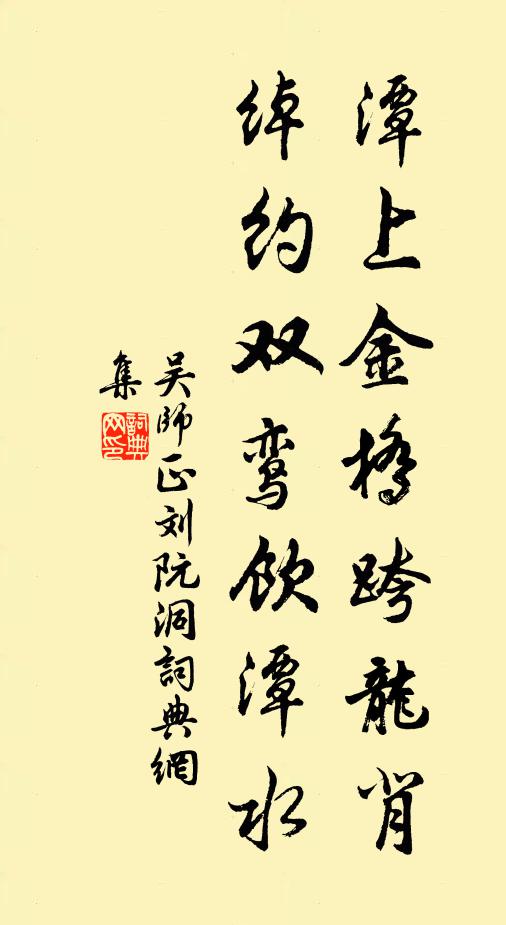 潭上金橋跨龍背
绰约双鸾饮潭水
吴師正刘阮洞詞典網
集
詞典网印